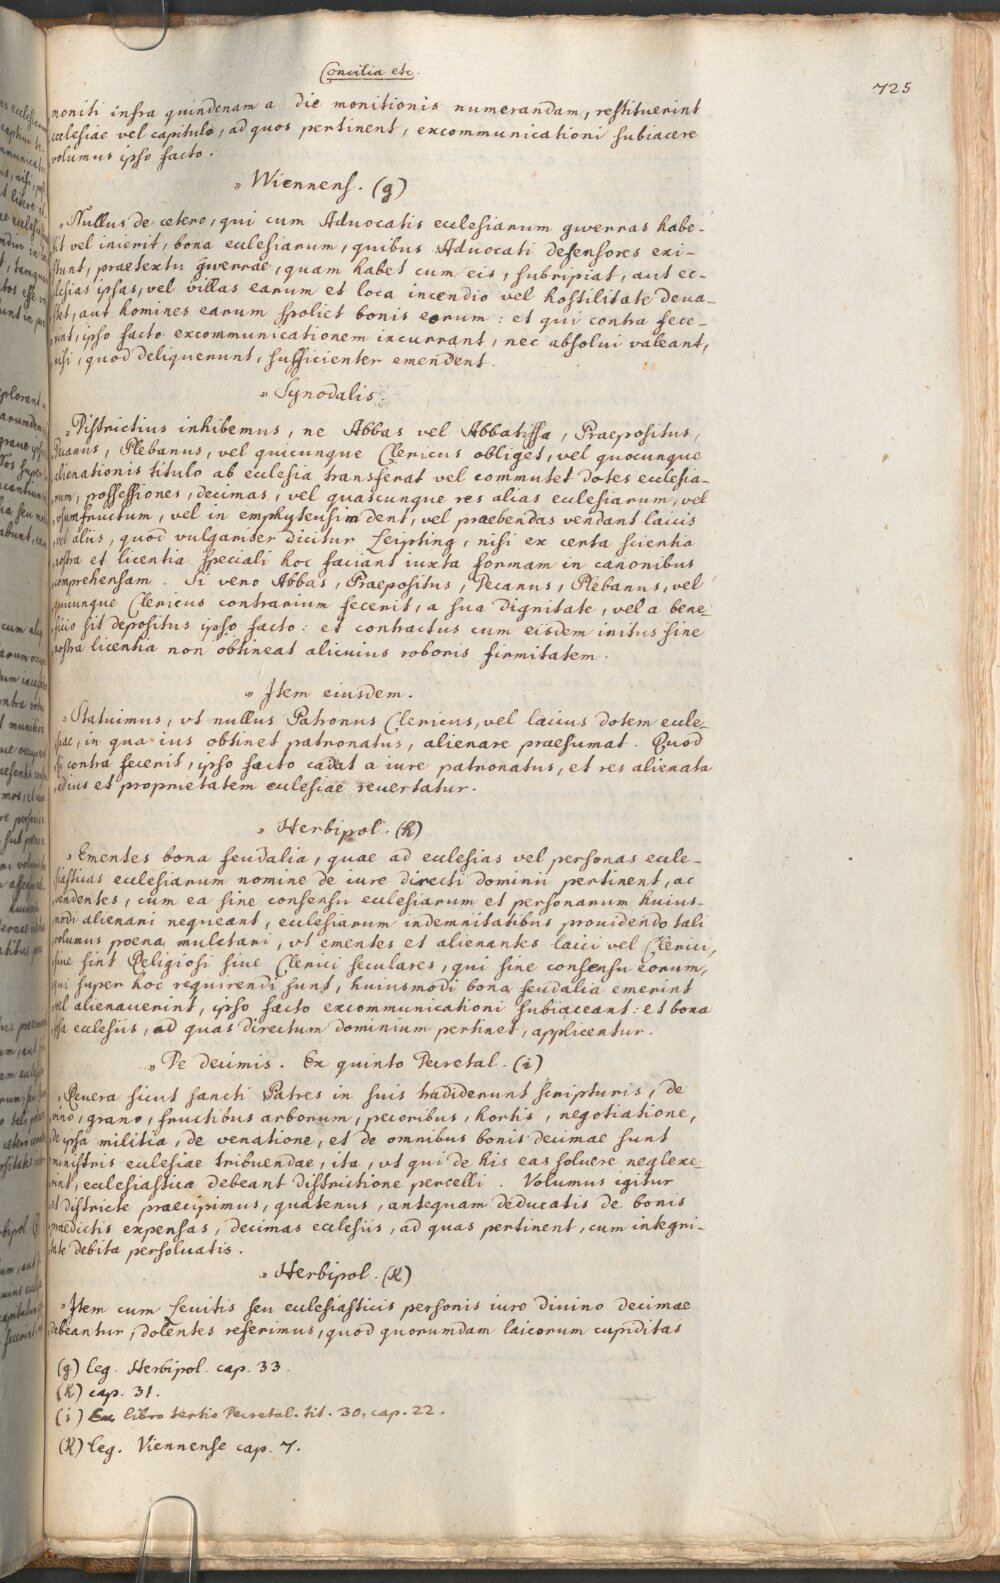 Concilia etc.
725
moniti infra quindenam a die monitionis numerandam, restituerint
ecclesiae vel capitulo, ad quos pertinent, excommunicationi subiacere
volumus ipso facto.
„ Wiennens. (g)
„ Nullus de cetero, qui cum Aduocatis ecclesiarum gwerras habe-
bit vel inierit, bona ecclesiarum, quibus Aduocati defensores exi-
stunt, praetextu gwerrae, quam habet cum eis, subripiat, aut ec-
clesias ipsas, vel villas earum et loca incendio vel hostilitate deua-
stet, aut homines earum spoliet bonis eorum: et qui contra fece-
rint, ipso facto excommunicationem incurrant, nec absolui valeant,
nisi, quod deliquerunt, sufficienter emendent.
„ Synodalis.
„ Districtius inhibemus, ne Abbas vel Abbatissa, Praepositus,
Decanus, Plebanus, vel quicunque Clericus obliget, vel quocunque
alienationis titulo ab ecclesia transferat vel commutet dotes ecclesia-
rum, possessiones, decimas, vel quascunque res alias ecclesiarum, vel
vsumfructum, vel in emphyteusim dent, vel praebendas vendant laicis
vel aliis, quod vulgariter dicitur Leipting, nisi ex certa scientia
nostra et licentia speciali hoc faciant iuxta formam in canonibus
comprehensam. Si vero Abbas, Praepositus, Decanus, Plebanus, vel
quicunque Clericus contrarium fecerit, a sua dignitate, vel a bene-
ficio sit depositus ipso facto: et contractus cum eisdem initus sine
nostra licentia non obtineat alicuius roboris firmitatem.
„ Item eiusdem.
„ Statuimus, vt nullus Patronus Clericus, vel laicus dotem eccle-
siae, in qua ius obtinet patronatus, alienare praesumat. Quod
si contra fecerit, ipso facto cadat a iure patronatus, et res alienata
ad ius et proprietatem ecclesiae reuertatur.
„ Herbipol. (h)
„ Ementes bona feudalia, quae ad ecclesias vel personas eccle-
siasticas ecclesiarum nomine de iure directi dominii pertinent, ac
vendentes, cum ea sine consensu ecclesiarum et personarum huius-
modi alienari nequeant, ecclesiarum indemnitatibus prouidendo tali
volumus poena mulctari, vt ementes et alienantes laici vel Clerici,
siue sint Religiosi siue Clerici seculares, qui sine consensu eorum,
qui super hoc requirendi sunt, huiusmodi bona feudalia emerint
vel alienauerint, ipso facto excommunicationi subiaceant: et bona
ipsa ecclesiis, ad quas directum dominium pertinet, applicentur.
„ De decimis. Ex quinto Decretal. (i)
„ Reuera sicut sancti Patres in suis tradiderunt scripturis, de
vino, grano, fructibus arborum, pecoribus, hortis, negotiatione,
de ipsa militia, de venatione, et de omnibus bonis decimae sunt
ministris ecclesiae tribuendae, ita, vt qui de his eas soluere neglexe-
rint, ecclesiastica debeant districtione percelli. Volumus igitur
et districte praecipimus, quatenus, antequam deducatis de bonis
praedictis expensas, decimas ecclesiis, ad quas pertinent, cum integri-
tate debita persoluatis.
„ Herbipol. (K)
„ Item cum Leuitis seu ecclesiasticis personis iure diuino decimae
debeantur, dolentes referimus, quod quorumdam laicorum cupiditas
(g) leg. Herbipol. cap. 33.
(h) cap. 31.
(i) Ex libro tertio Decretal. tit. 30. cap. 22.
(K) leg. Viennense cap. 7.